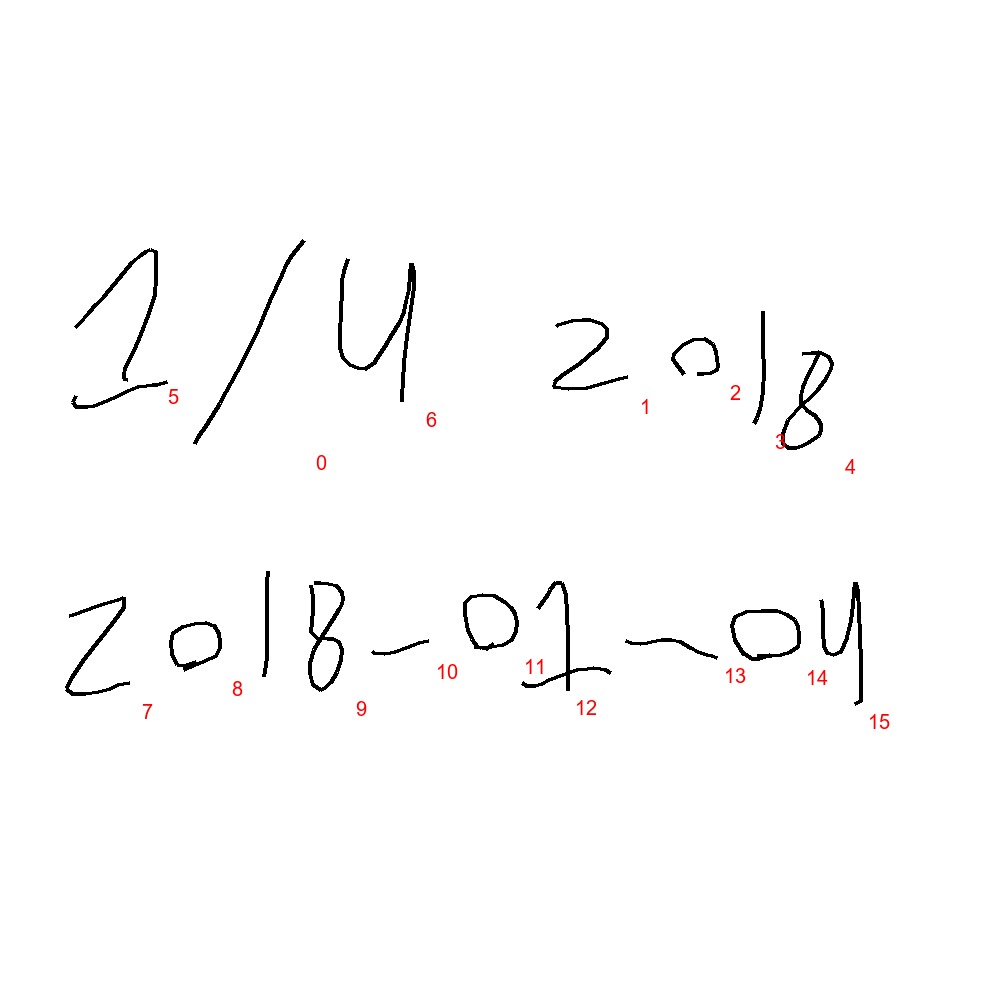 1/4 2018
5 0 6 1 2 3 4
2018-01-04
7 8 9 10 11 12 13 14 15